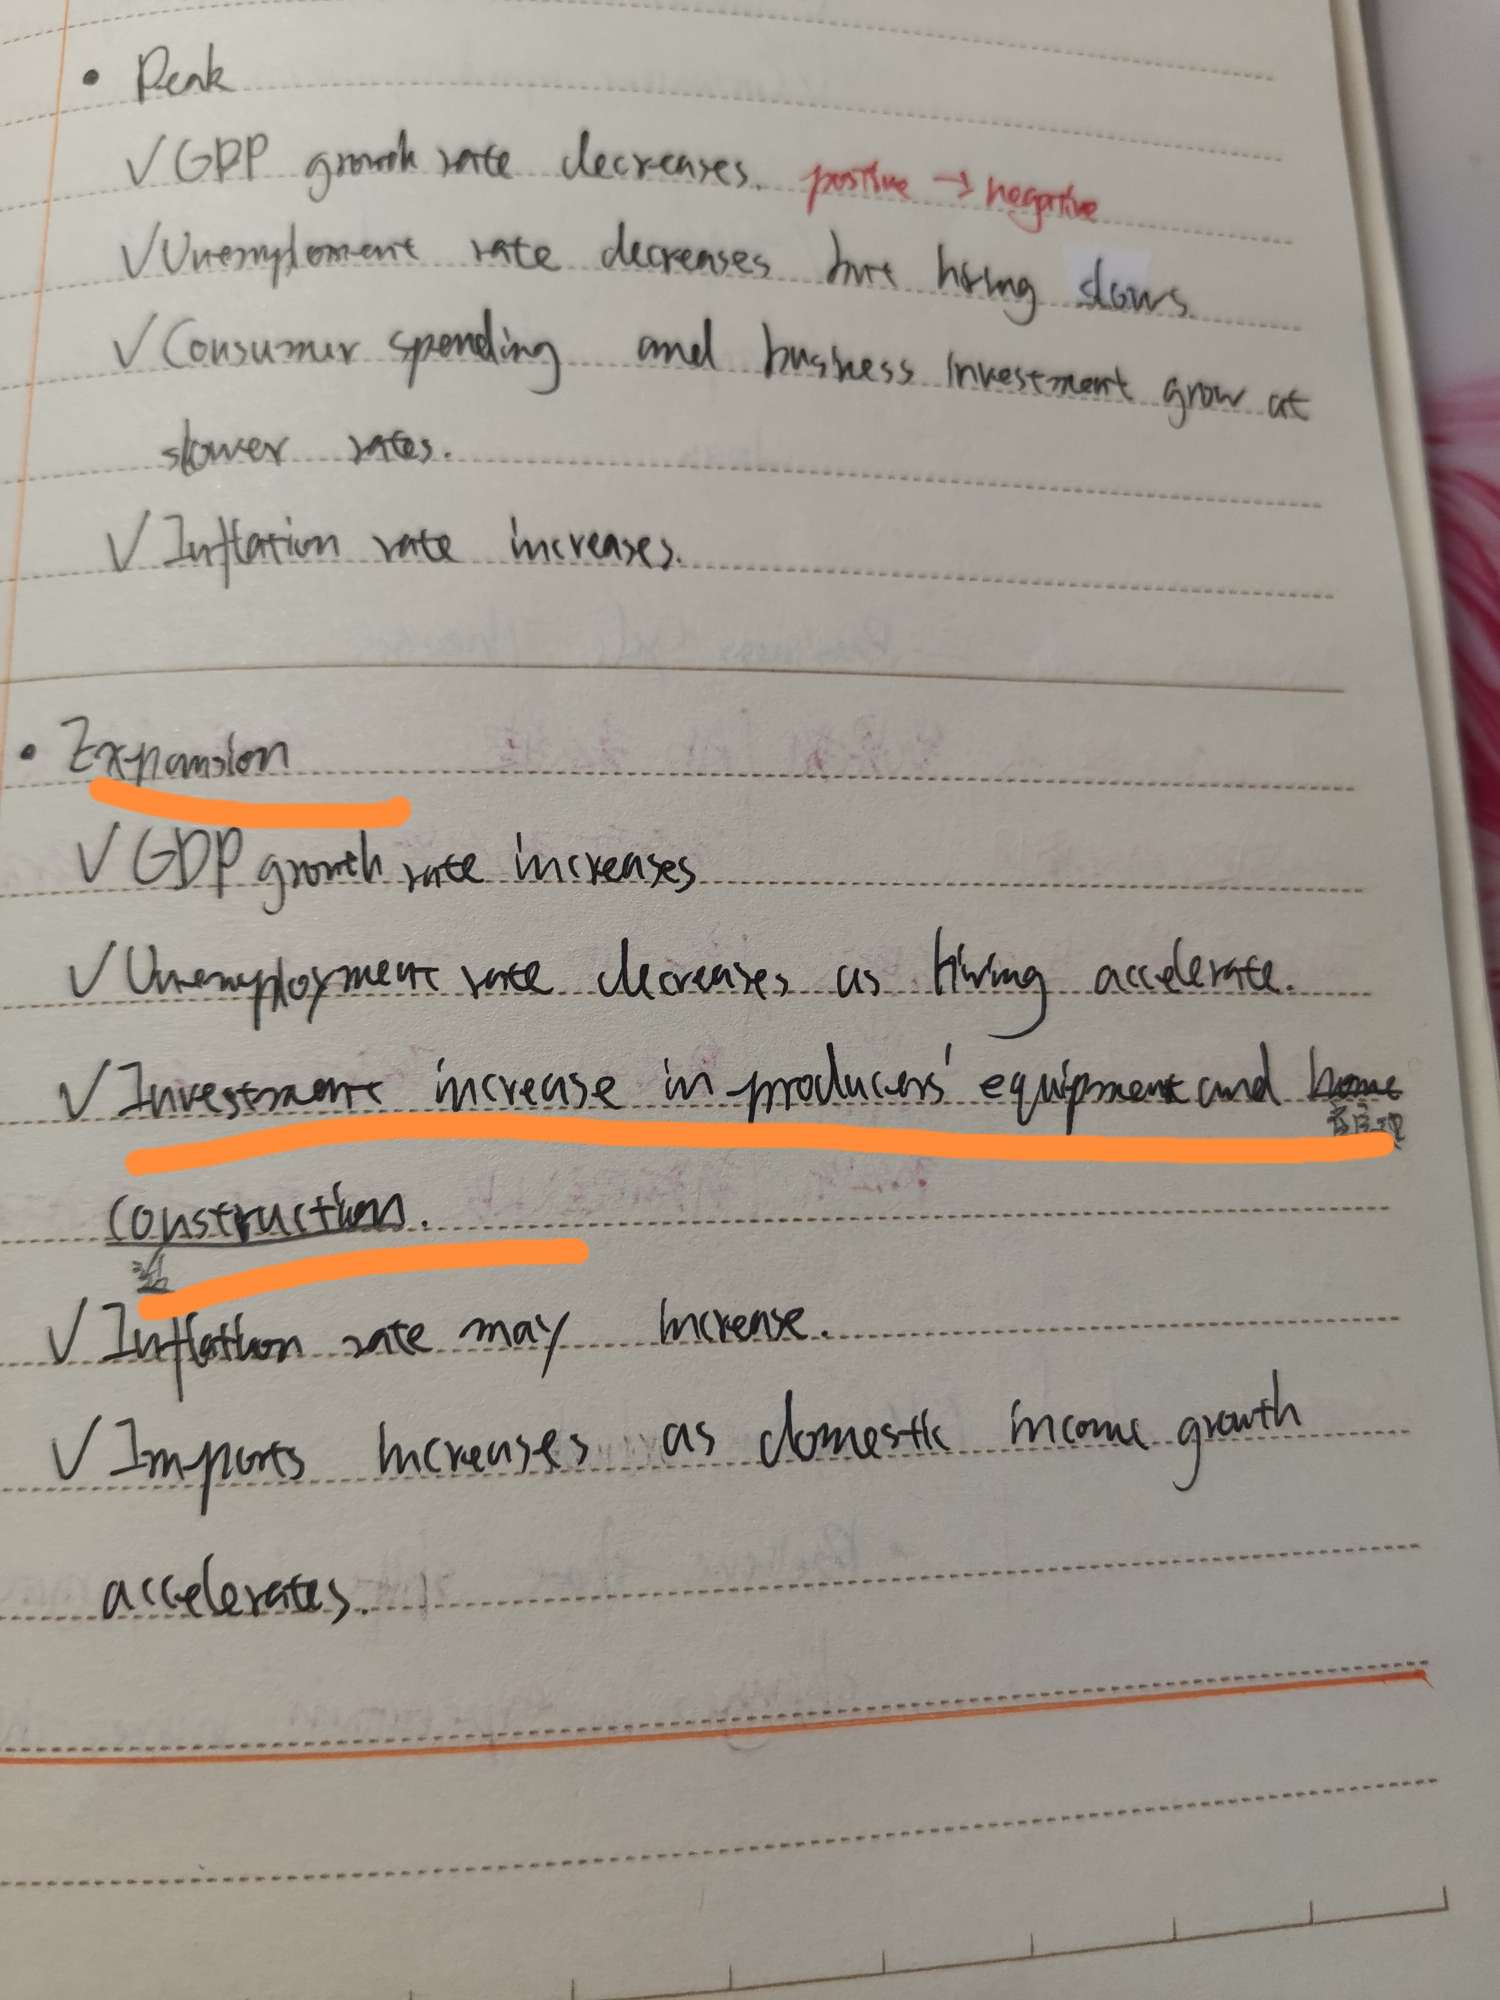 • Peak
✓ GDP growth rate decreases. positive → negative
✓ Unemploment rate decreases but hiring slows.
✓ Consumer spending and business investment grow at
slower rates.
✓ Inflation rate increases.
• Expansion
✓ GDP growth rate increases
✓ Unemployment rate decreases as hiring accelerate.
✓ Investment increase in producers' equipment and home
construction.
✓ Inflation rate may increase.
✓ Imports increases as domestic income growth
accelerates.